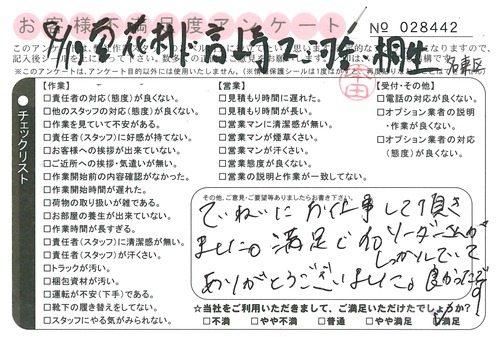 お客様不満足度アンケート
No 028442
※このアンケートは、アンケート目的以外には使用いたしません。
チェックリスト
【作業】
□責任者の対応（態度）が良くない。
□他のスタッフの対応（態度）が良くない。
□作業を見ていて不安がある。
□責任者（スタッフ）に好感が持てない。
□お客様への挨拶が出来ていない。
□ご近所への挨拶・気遣いが無い。
□作業開始前の内容確認がなかった。
□作業開始時間が遅れた。
□荷物の取り扱いが雑である。
□お部屋の養生が出来ていない。
□作業時間が長すぎる。
□責任者（スタッフ）に清潔感が無い。
□責任者（スタッフ）が汗くさい。
□トラックが汚い。
□梱包資材が汚い。
□運転が不安（下手）である。
□靴下の履き替えをしてない。
□スタッフにやる気がみられない。
【営業】
□見積もり時間に遅れた。
□見積もり時間が長い。
□営業マンに清潔感が無い。
□営業マンが煙草くさい。
□営業マンが汗くさい。
□営業態度が良くない。
□営業の説明と作業が一致してない。
【受付・その他】
□電話の対応が良くない。
□オプション業者の説明
・作業が良くない。
□オプション業者の対応
（態度）が良くない。
その他、ご意見・ご要望等ありましたらお書き下さい。
ていねいにお仕事して頂き
ました。満足です
リーダーさんが
しっかりしていて
ありがとうございました。良かったです
☆当社をご利用いただきまして、ご満足いただけたでしょうか？
□不満 □やや不満 □普通 □やや満足 □満足